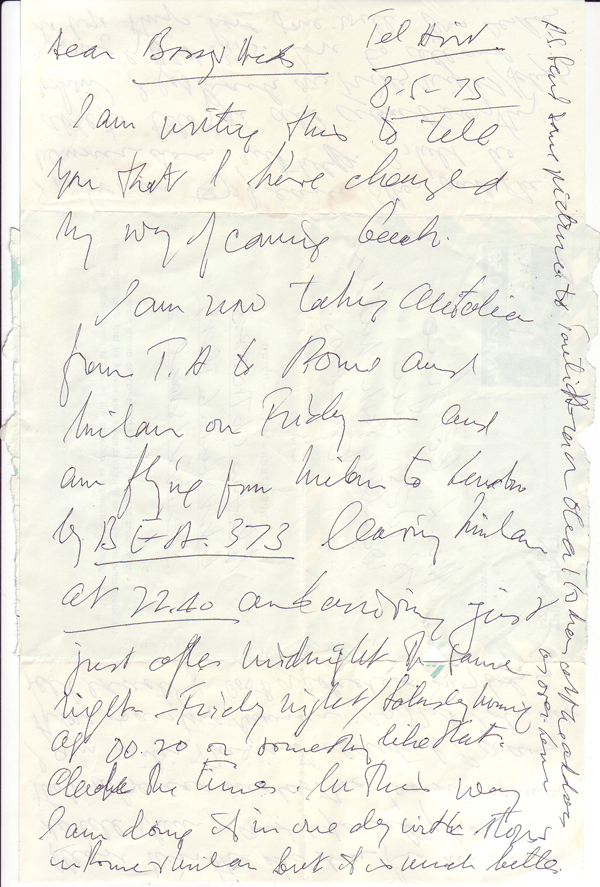 Dear
Tel Aviv
8-5-75
I am writing this to tell
you that I have changed
my way of coming back.
I am now taking
from T.A to Rome and
Milan on Friday — and
am flying from Milan to London
by BEA. 373 leaving Milan
at 22.40 and arriving just
just after midnight the same
night – Friday night/Saturday morning
at 00.20 or something like that.
Check the times. In this way
I am doing it in one day with stops
in Rome & Milan but it is much better
P.S. Send some pictures to